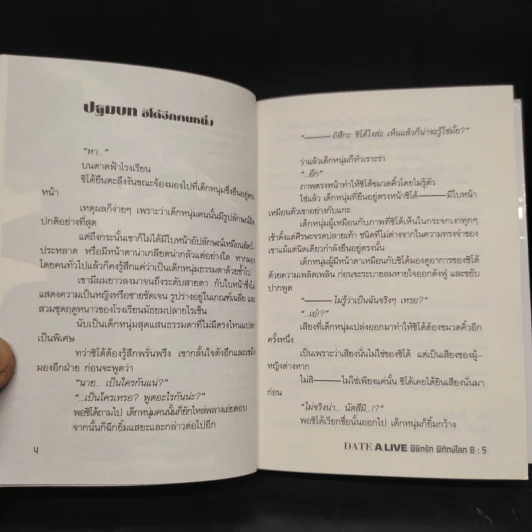 ปฐมบท ชิโด้อีกคนหนึ่ง
"หา..."
บนดาดฟ้าโรงเรียน
ชิโด้ยืนตะลึงงันขณะจ้องมองไปที่เด็กหนุ่มซึ่งยืนอยู่ตรง
หน้า
เหตุผลก็ง่ายๆ เพราะว่าเด็กหนุ่มคนนั้นมีรูปลักษณ์ผิด
ปกติอย่างที่สุด
แต่ถึงกระนั้นเขาก็ไม่ได้มีใบหน้าอัปลักษณ์เหมือนสัตว์
ประหลาด หรือมีหน้าตาน่าเกลียดน่ากลัวแต่อย่างใด หากมอง
โดยคนทั่วไปแล้วก็คงรู้สึกแค่ว่าเป็นเด็กหนุ่มธรรมดาด้วยซ้ำไป
เขามีผมยาวลงมาจนถึงระดับสายตา กับใบหน้าซึ่งไม่
แสดงความเป็นหญิงหรือชายชัดเจน รูปร่างอยู่ในเกณฑ์เฉลี่ย และ
สวมชุดฤดูหนาวของโรงเรียนมัธยมปลายไรเซ็น
นับเป็นเด็กหนุ่มสุดแสนธรรมดาที่ไม่มีตรงไหนแปลก
เป็นพิเศษ
ทว่าชิโด้ต้องรู้สึกพรั่นพรึง เขากลั้นใจดังอึกและเขม้น
มองอีกฝ่าย ก่อนจะพูดว่า
"นาย... เป็นใครกันแน่?"
"...เป็นใครเหรอ? พูดอะไรกันน่ะ?"
พอชิโด้ถามไป เด็กหนุ่มคนนั้นก็ยักไหล่พลางเอ่ยตอบ
จากนั้นก็ฉีกยิ้มแสยะและกล่าวต่อไปอีก
๔
"———อิสึกะ ชิโด้ไงล่ะ เห็นแล้วก็น่าจะรู้ใช่มั้ย?"
ว่าแล้วเด็กหนุ่มก็หัวเราะร่า
"...อึก"
ภาพตรงหน้าทำให้ชิโด้ขมวดคิ้วโดยไม่รู้ตัว
ใช่แล้ว เด็กหนุ่มที่ยืนอยู่ตรงหน้าชิโด้———มีใบหน้า
เหมือนตัวเขาอย่างกับแกะ
เด็กหนุ่มผู้เหมือนกับภาพที่ชิโด้เห็นในกระจกเงาทุกๆ
เช้าตั้งแต่ศีรษะจรดปลายเท้า ชนิดที่ไม่ต่างจากในความทรงจำของ
เขาแม้แต่นิดเดียวกำลังยืนอยู่ตรงนั้น
เด็กหนุ่มผู้มีหน้าตาเหมือนกับชิโด้มองดูอาการของชิโด้
ด้วยความเพลิดเพลิน ก่อนจะระบายลมหายใจออกดังฟู่ และขยับ
ปากพูด
"——— ไม่รู้ว่าเป็นฉันจริงๆ เหรอ?"
"...เอ๋?"
เสียงที่เด็กหนุ่มเปล่งออกมาทำให้ชิโด้ต้องขมวดคิ้วอีก
ครั้งหนึ่ง
เป็นเพราะว่าเสียงนั้นไม่ใช่ของชิโด้ แต่เป็นเสียงของผู้-
หญิงต่างหาก
ไม่สิ———ไม่ใช่เพียงแค่นั้น ชิโด้เคยได้ยินเสียงนั่นมา
ก่อน
"ไม่จริงน่า... นัตสึมิ...!?"
พอชิโด้เรียกชื่อนั้นออกไป เด็กหนุ่มก็ยิ้มกว้าง
DATE A LIVE พิชิตรัก พิทักษ์โลก 8 : 5